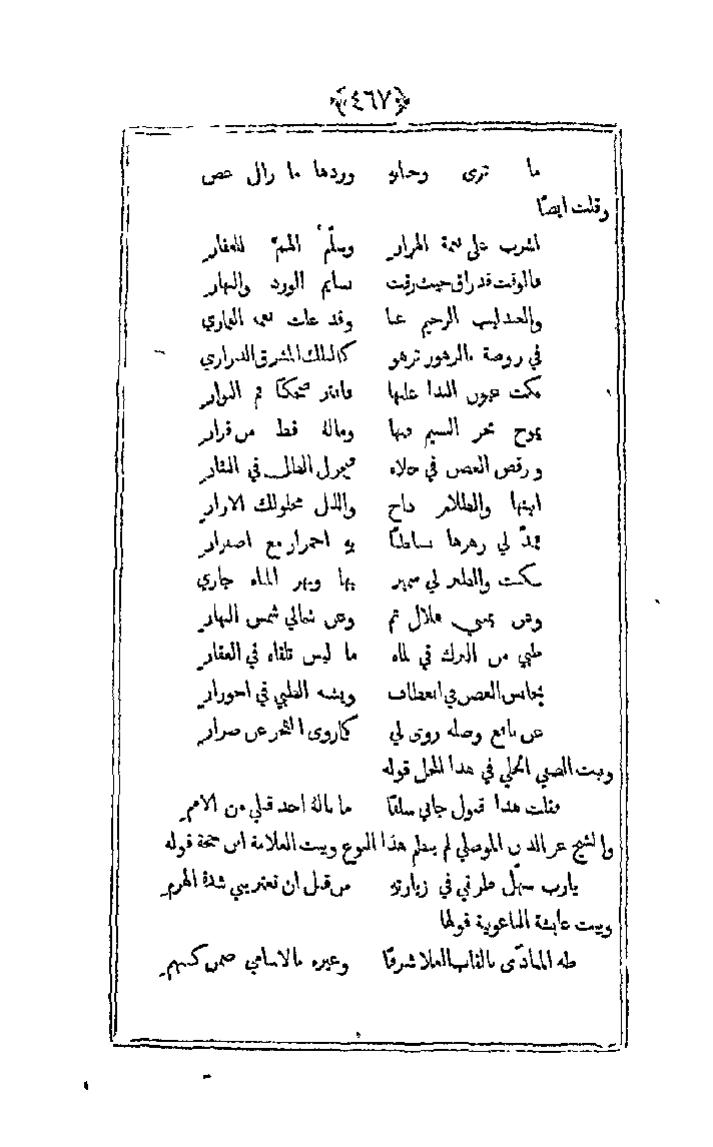 ﴿٤٦٧﴾
ما ترى وحلَنِهِ وردها ما زال غض
وقلت ايضًا
اشرب على نغمة الهزار وسلّم الهمّ للعقار
فالوقت قد راق حيث رقت نسايم الورد والبهار
والعندليب الرخيم غنا وقد علت نغمة القماري
في روضة بالزهور تزهو كالفلك المشرق الدراري
بكت عيون الندا عليها فافتر ضحكًا فم النوار
يموج بحر النسيم فيها وماله قط من قرار
ورقص الغصن في حلاه فيهزل الطل في النثار
اتيتها والظلام داج والليل محلولك الازار
فمدّ لي زهرها بساطًا به احمرار مع اصفرار
سكت والطير لي سمير بها ونهر الماء جاري
وعن يميني هلال تم وعن شمالي شمس النهار
ظبي من الترك في لماه ما ليس تلقاه في العقار
يجانس الغصن في انعطاف ويشبه الظبي في احورار
عن نافع وصله روى لي كما روى الثغر عن ضرار
وبيت الصفي الحلي في هذا المحل قوله
فقلت هذا قبول جاني سلفا ما ناله احد قبلي من الامم
والشيخ عز الدين الموصلي لم ينظم هذا النوع وبيت العلامة ابن حجة قوله
يارب سهّل طرقي في زيارته من قبل ان تعتريني شدة الهرم
وبيت عايشة الباعونية قولها
طه المنادَى بالقاب العلا شرفًا وغيره بالاسامي ضمن كتبهم